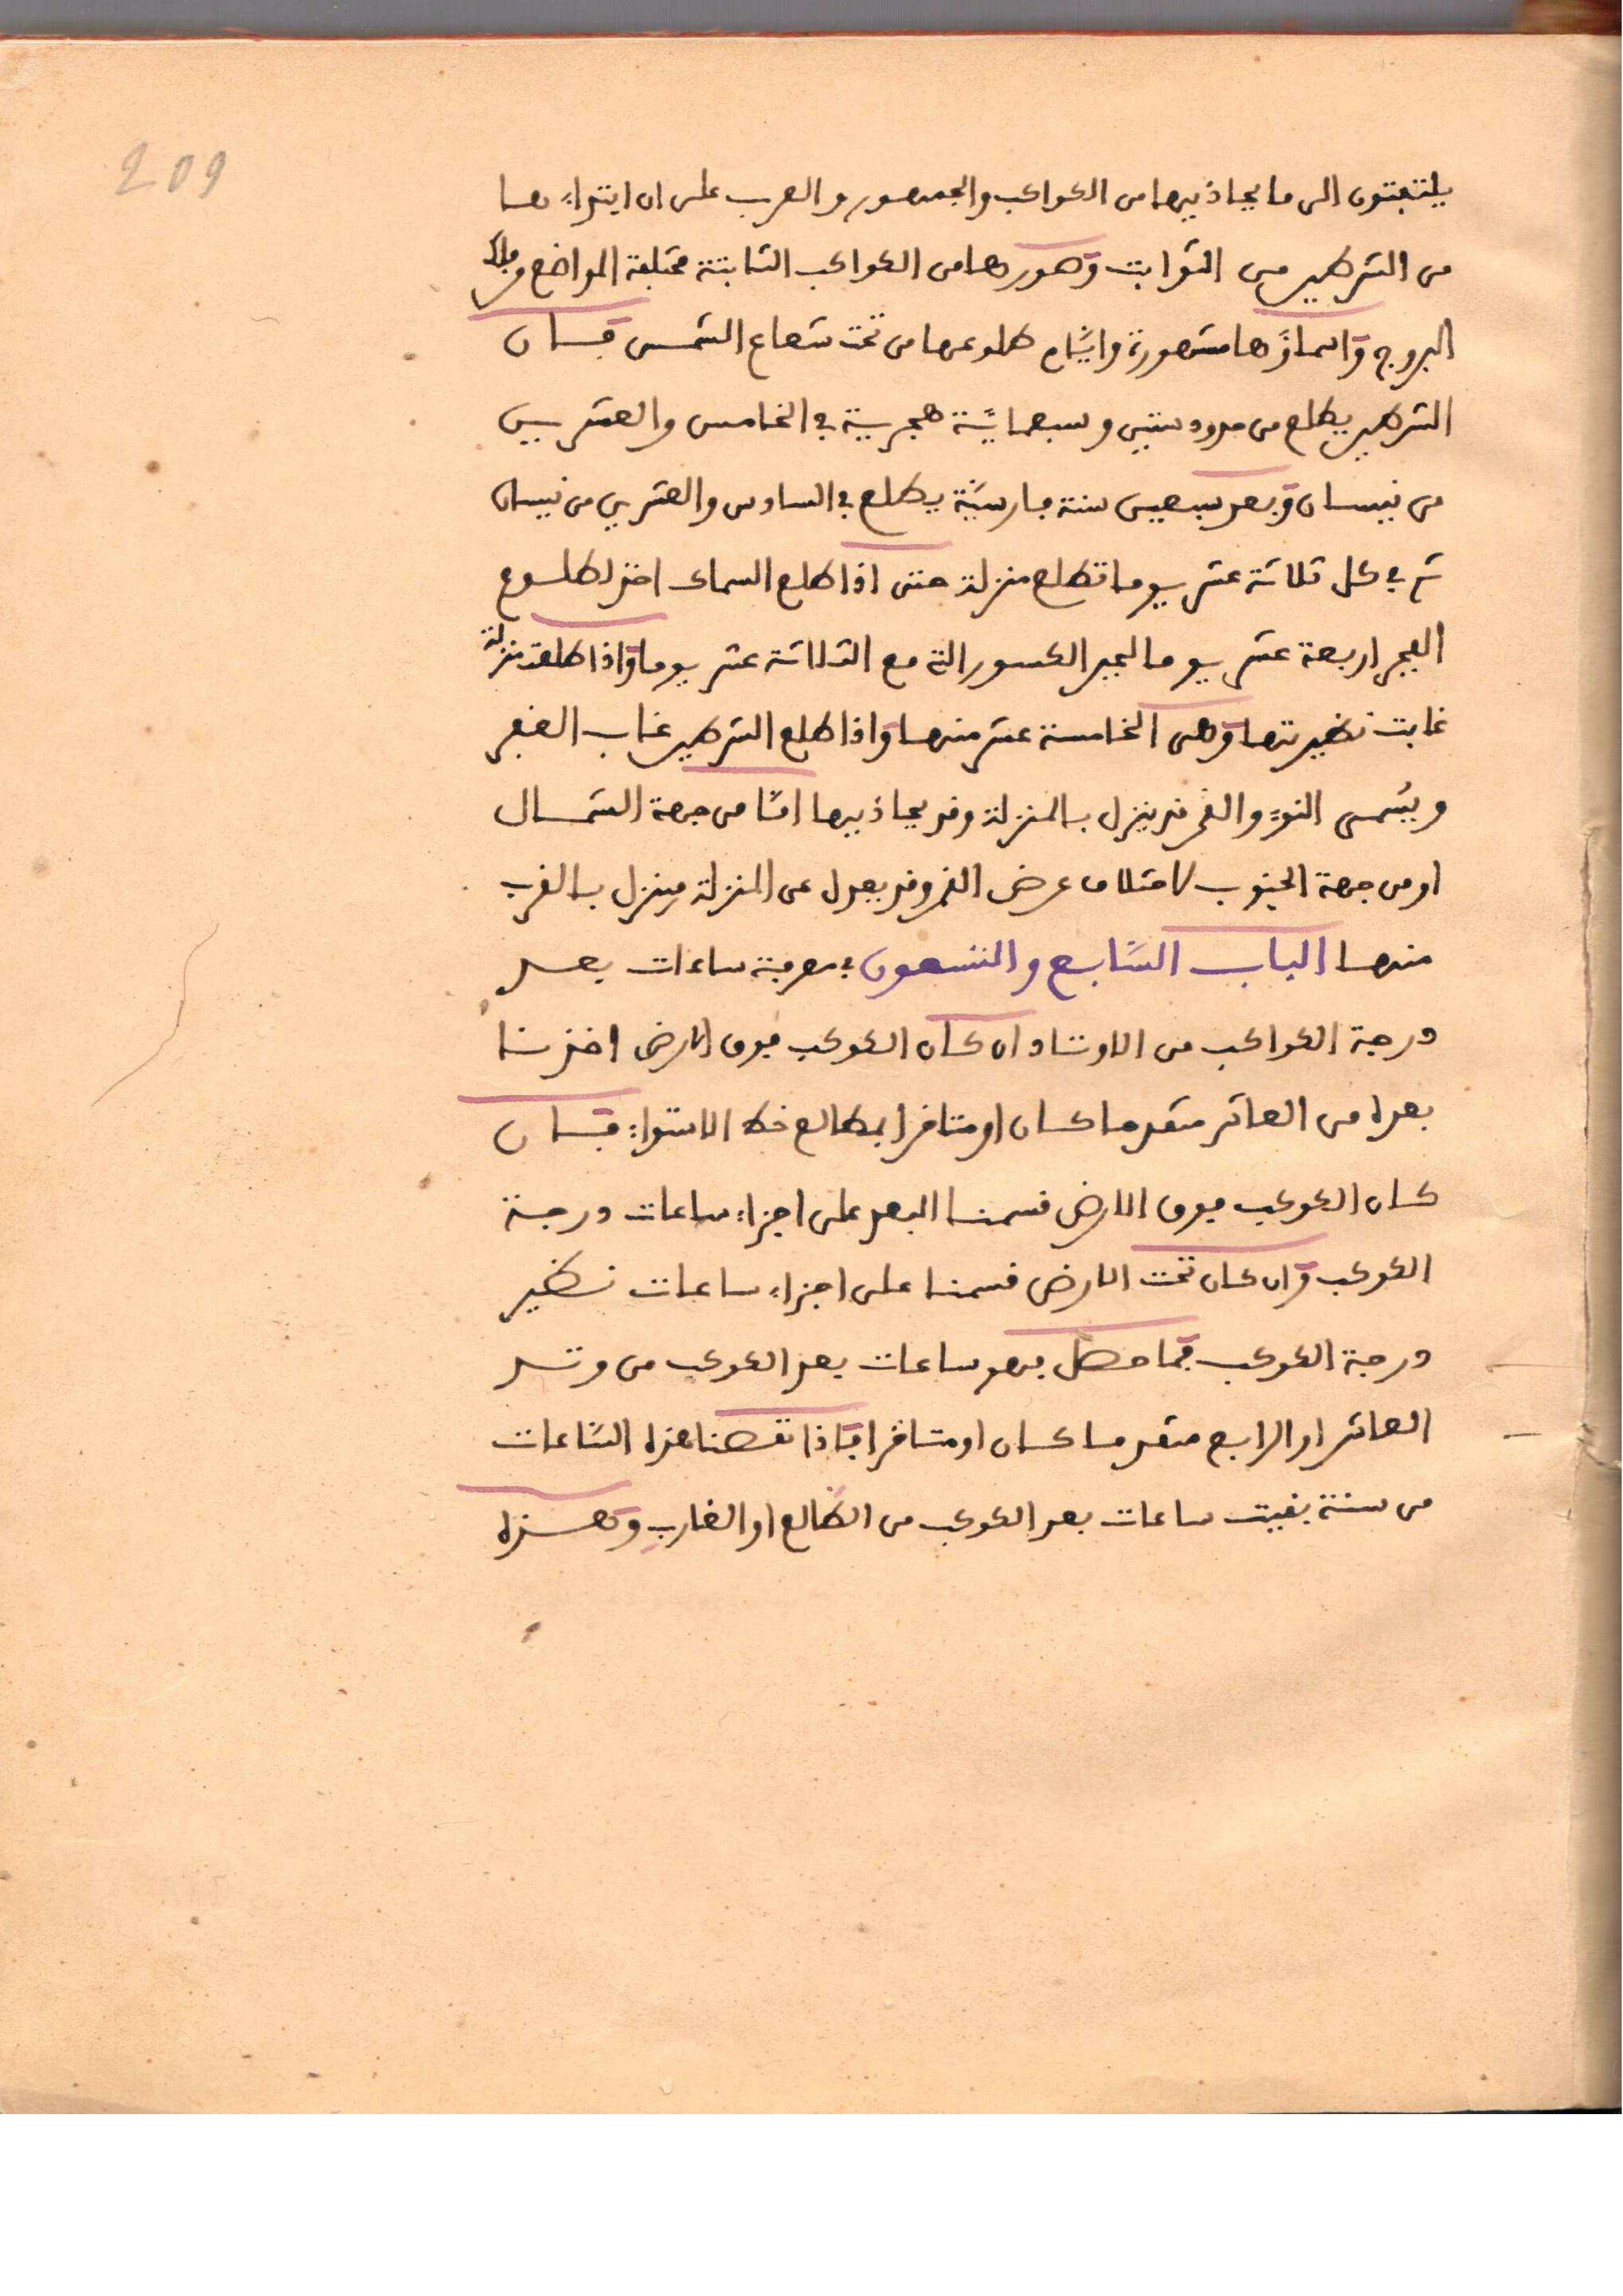 209
يلتفتون الى ما يحاذيها من الكواكب والجمهور والعرب على ان ابتداءها
من الشرطين من الثوابت وصورها من الكواكب الثابتة مختلفة المواضع وفلك
البروج واسماؤها مشهورة وايام طلوعها من تحت شعاع الشمس فان
الشرطين يطلع من حدود سنين وسبعماية هجرية في الخامس والعشرين
من نيسان وبعد سبعين سنة فارسية يطلع في السادس والعشرين من نيسان
ثم في كل ثلاثة عشر يوما تطلع منزلة حتى اذا طلع السماك اخذ لطلوع
الفجر اربعة عشر يوما لجبر الكسور التي مع الثلاثة عشر يوما واذا طلعت منزلة
غابت نظيرتها وهي الخامسة عشر منها واذا طلع الشرطين غاب الغفر
ويسمى النوء والقمر قد ينزل بالمنزلة وقد يحاذيها اما من جهة الشمال
او من جهة الجنوب لاختلاف عرض القمر وقد يعدل عن المنزلة فينزل بالقرب
منها الباب السابع والتسعون في معرفة ساعات بعد
درجة الكواكب من الاوتاد ان كان الكوكب فوق الارض اخذنا
بعده من العاشر متقدما كان او متاخرا بمطالع خط الاستواء فان
كان الكوكب فوق الارض قسمنا البعد على اجزاء ساعات درجة
الكوكب وان كان تحت الارض قسمنا على اجزاء ساعات نظير
درجة الكوكب فما حصل فهو ساعات بعد الكوكب من وتد
العاشر او الرابع متقدما كان او متاخرا فاذا نقصنا هذه الساعات
من ستة بقيت ساعات بعد الكوكب من الطالع او الغارب وهذه